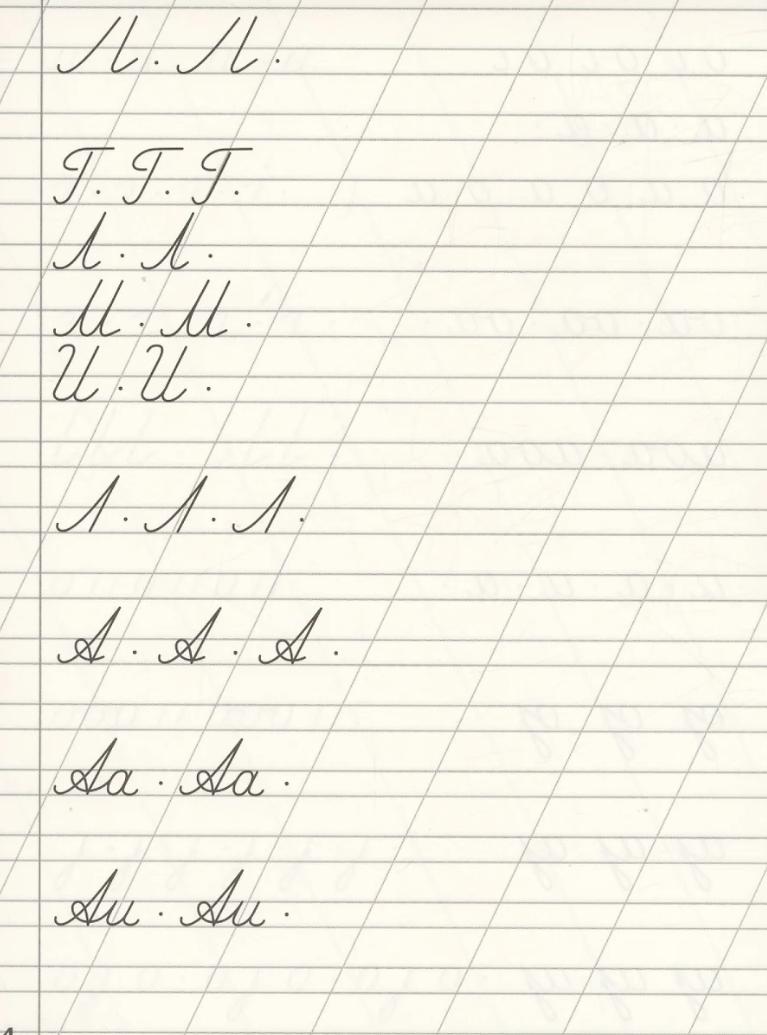 Л. Л.
Г. Г. Г.
Л. Л.
М. М.
И. И.
Л. Л. Л.
А. А. А.
Аа. Аа.
Аи. Аи.